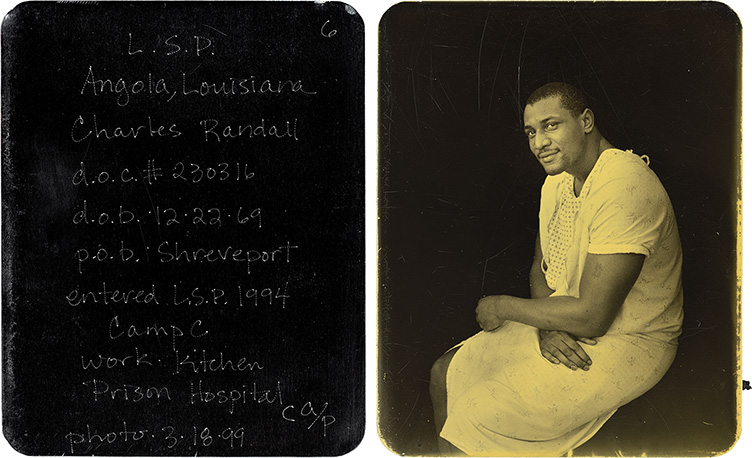 6
L.S.P.
Angola, Louisiana
Charles Randall
d.o.c.# 230316
d.o.b. 12·22·69
p.o.b. Shreveport
entered L.S.P. 1994
Camp C
work· Kitchen
Prison Hospital
c a/p
photo· 3·18·99